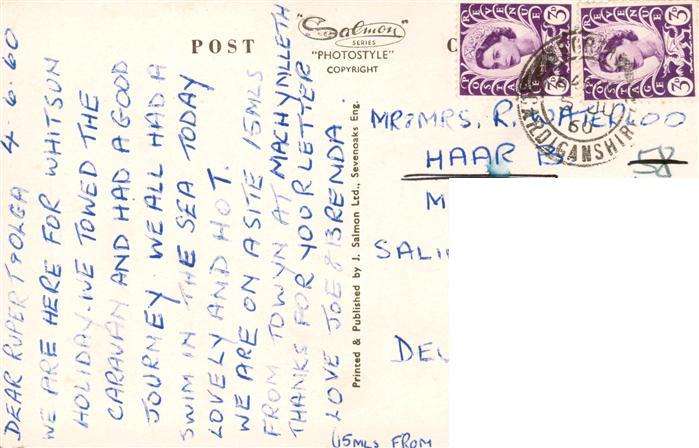 POST
"Salmon"
SERIES
"PHOTOSTYLE"
COPYRIGHT
C
4.6.60
DEAR RUPERT & OLGA
WE ARE HERE FOR WHITSUN
HOLIDAY. WE TOWED THE
CARAVAN AND HAD A GOOD
JOURNEY. WE ALL HAD A
SWIM IN THE SEA TODAY
LOVELY AND HOT.
WE ARE ON A SITE 15MLS
FROM TOWYN AT MACHYNLLETH
THANKS FOR YOUR LETTER
LOVE JOE & BRENDA
Printed & Published by J. Salmon Ltd., Sevenoaks Eng.
POSTAGE
REVENUE
3D
POSTAGE
REVENUE
3D
60
CARDIGANSHIRE
MR & MRS. R. WATERLOO
HAAR
58
M
SALI
DE
(15MLS FROM